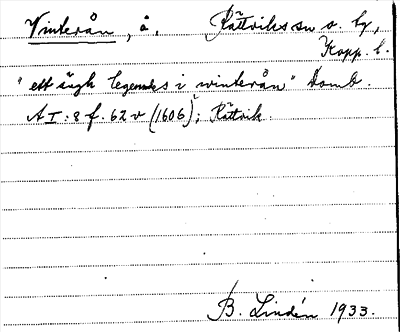 Vinterån, å. Rättviks sn o. by,
Kopp. l.
"ett ängh legendes i winterån" Domb.
A I. 8 f. 62 v (1606); Rättvik.
B. Lindén 1933.